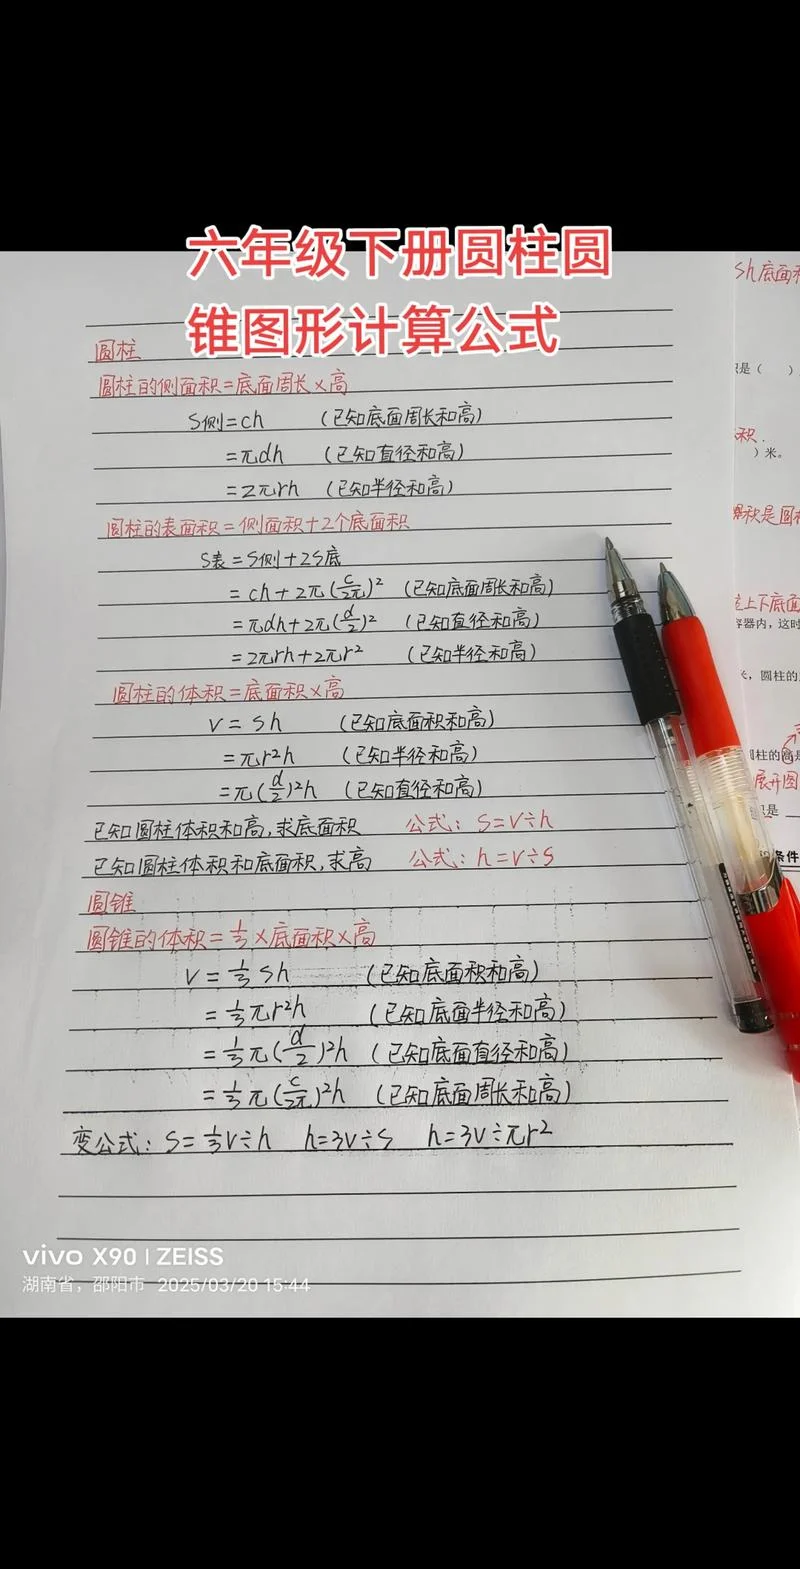 六年级下册圆柱圆
锥图形计算公式
圆柱
圆柱的侧面积=底面周长×高
S侧=ch (已知底面周长和高)
=πdh (已知直径和高)
=2πrh (已知半径和高)
圆柱的表面积=侧面积+2个底面积
S表=S侧+2S底
=ch+2π(c/2π)² (已知底面周长和高)
=πdh+2π(d/2)² (已知直径和高)
=2πrh+2πr² (已知半径和高)
圆柱的体积=底面积×高
V=sh (已知底面积和高)
=πr²h (已知半径和高)
=π(d/2)²h (已知直径和高)
已知圆柱体积和高,求底面积 公式:S=V÷h
已知圆柱体积和底面积,求高 公式:h=V÷s
圆锥
圆锥的体积=1/3×底面积×高
V=1/3sh (已知底面积和高)
=1/3πr²h (已知底面半径和高)
=1/3π(d/2)²h (已知底面直径和高)
=1/3π(c/2π)²h (已知底面周长和高)
变公式:S=1/3V÷h h=3V÷s h=3V÷πr²
sh底面积
是( )
积.
)米。
积是圆
上下底面
容器内，这时
，圆柱的
圆柱的高是
展开图
是
条件
vivo X90 | ZEISS
湖南省，邵阳市 2025/03/20 15:44